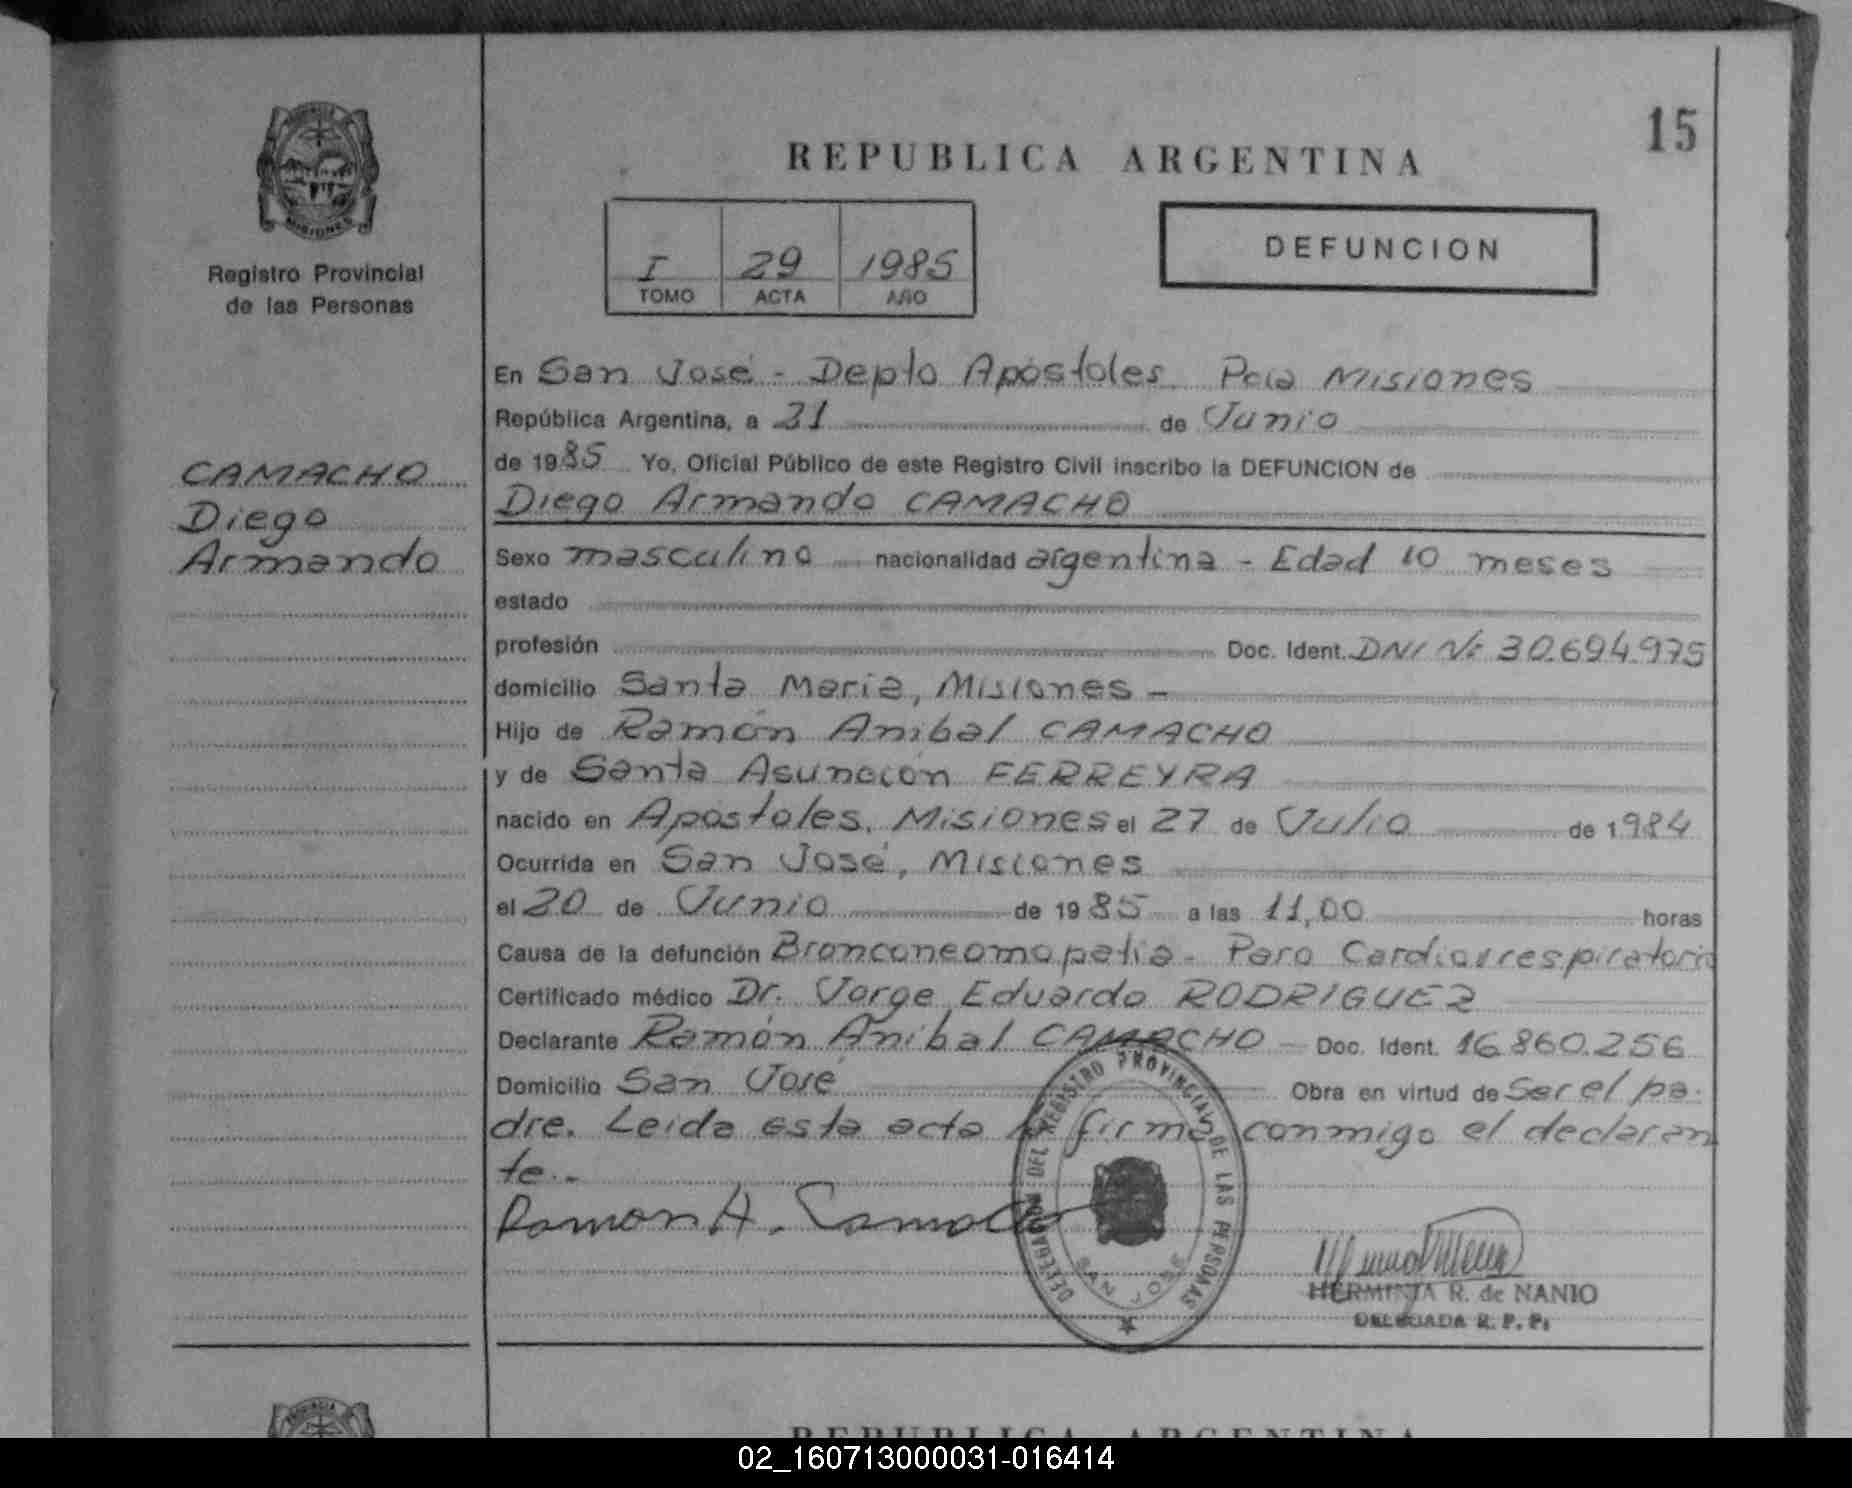 15
REPUBLICA ARGENTINA
PROVINCIA
MISIONES
Registro Provincial
de las Personas
I 29 1985
TOMO ACTA AÑO
DEFUNCION
CAMACHO
Diego
Armando
En San José - Depto Apóstoles. Pcia Misiones
República Argentina, a 21 de Junio
de 1985 Yo, Oficial Público de este Registro Civil inscribo la DEFUNCION de
Diego Armando CAMACHO
Sexo masculino nacionalidad argentina - Edad 10 meses
estado
profesión Doc. Ident. DNI Nº 30.694.975
domicilio Santa María, Misiones -
Hijo de Ramón Anibal CAMACHO
y de Santa Asunción FERREYRA
nacido en Apóstoles, Misiones el 27 de Julio de 1984
Ocurrida en San José, Misiones
el 20 de Junio de 1985 a las 11,00 horas
Causa de la defunción Bronconeomopatia - Paro Cardiorrespiratorio
Certificado médico Dr. Jorge Eduardo RODRIGUEZ
Declarante Ramón Anibal CAMACHO - Doc. Ident. 16.860.256
Domicilio San José Obra en virtud de Ser el pa-
dre. Leida esta acta la firma conmigo el declaran
te.-
Ramon A. Camacho
DELEGACION DEL REGISTRO PROVINCIAL DE LAS PERSONAS
SAN JOSE
HERMINIA R. de NANIO
DELEGADA R. P. P.
PROVINCIA
REPUBLICA ARGENTINA
02_160713000031-016414